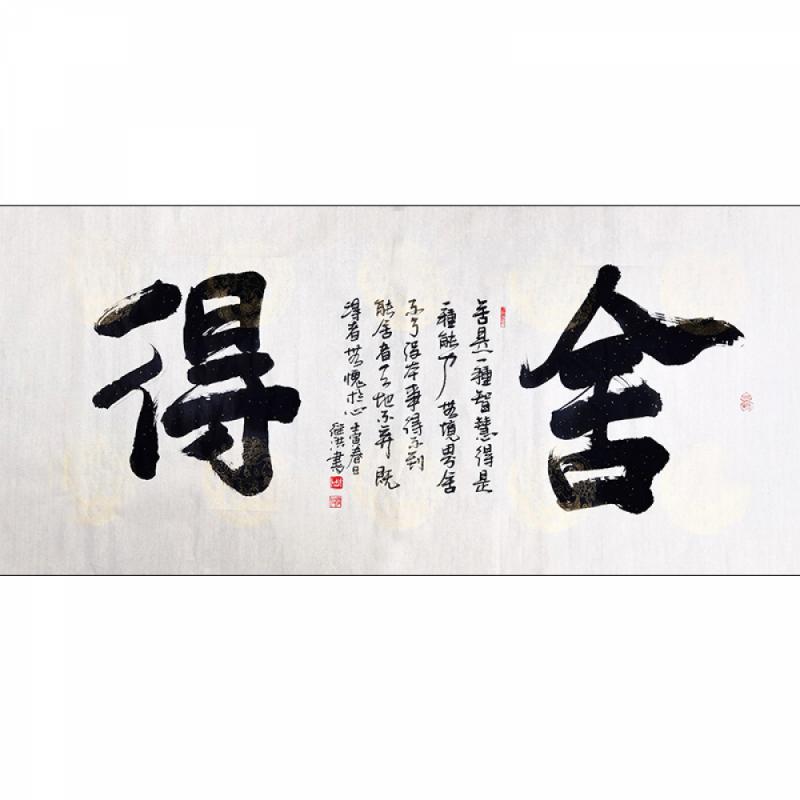 舍
舍是一種智慧得是
一種能力無境界舍
不了没本事得不到
能舍者天地不弃既
得者無愧於心壬寅春日
書
得